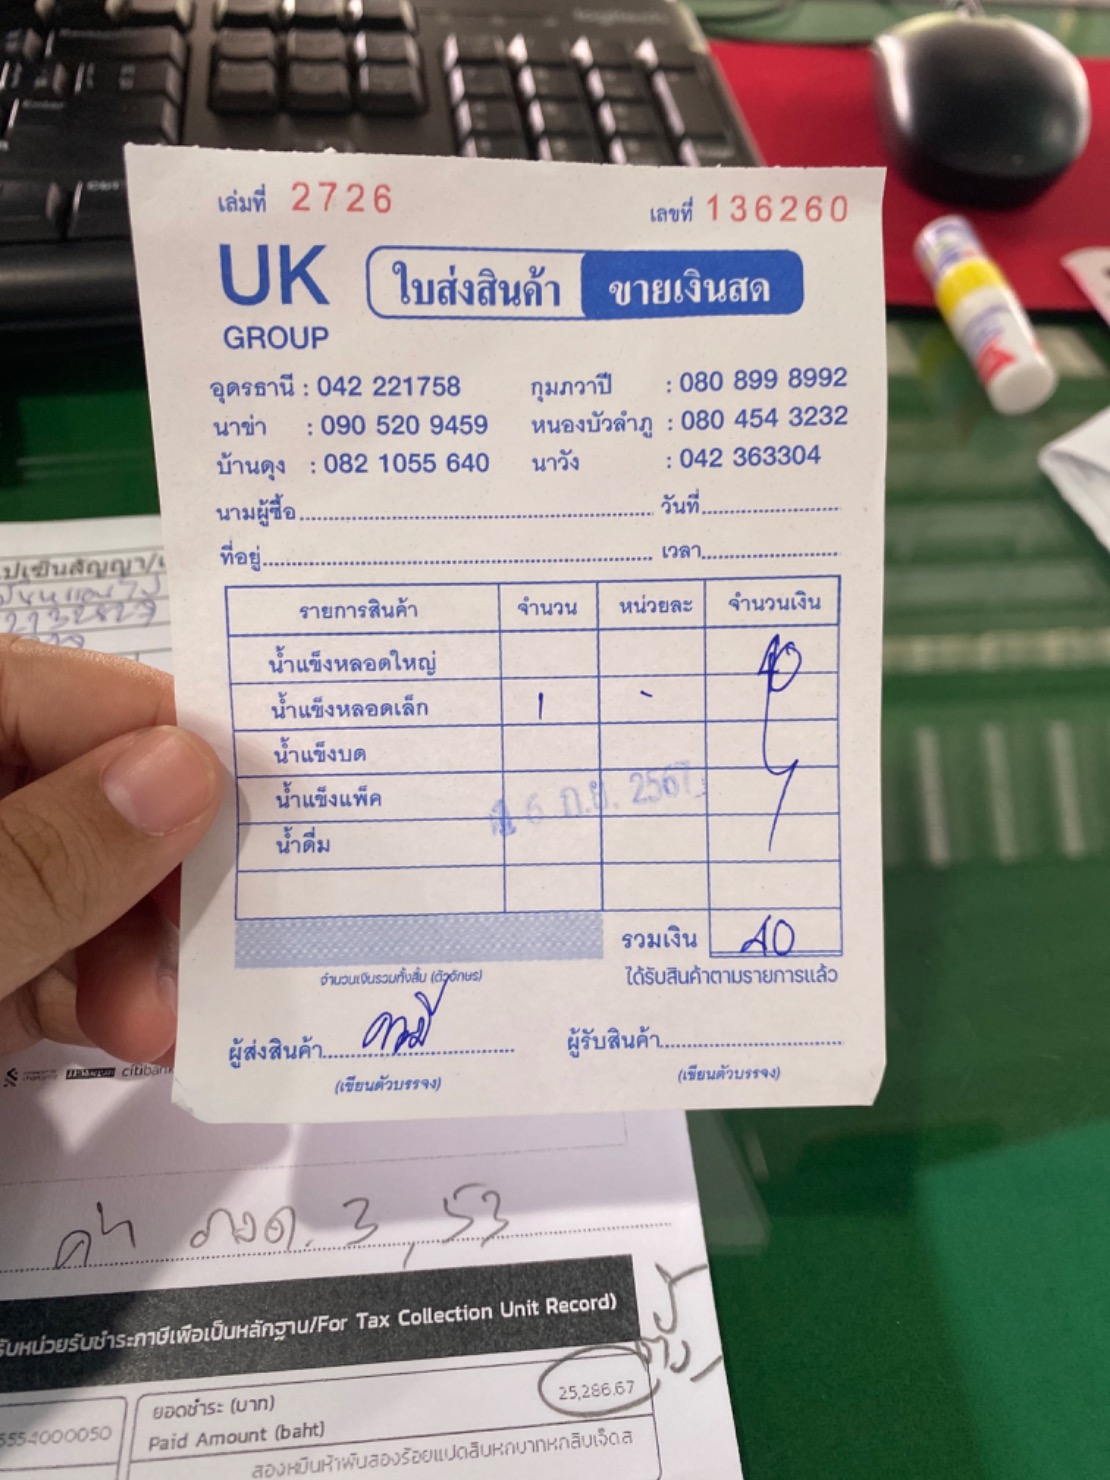 เล่มที่ 2726 เลขที่ 136260
UK GROUP
ใบส่งสินค้า ขายเงินสด
อุดรธานี : 042 221758 กุมภวาปี : 080 899 8992
นาข่า : 090 520 9459 หนองบัวลำภู : 080 454 3232
บ้านดุง : 082 1055 640 นาวัง : 042 363304
นามผู้ซื้อ วันที่
ที่อยู่ เวลา
รายการสินค้า จำนวน หน่วยละ จำนวนเงิน
น้ำแข็งหลอดใหญ่ 40
น้ำแข็งหลอดเล็ก 1
น้ำแข็งบด
น้ำแข็งแพ็ค
6 ก.ย. 2567
น้ำดื่ม
รวมเงิน 40
จำนวนเงินรวมทั้งสิ้น (ตัวอักษร) ได้รับสินค้าตามรายการแล้ว
ผู้ส่งสินค้า ผู้รับสินค้า
(เขียนตัวบรรจง) (เขียนตัวบรรจง)
citibank
3,53
รับหน่วยรับชำระภาษีเพื่อเป็นหลักฐาน/For Tax Collection Unit Record)
5554000050 ยอดชำระ (บาท) 25,286.67
Paid Amount (baht)
สองหมื่นห้าพันสองร้อยแปดสิบหกบาทหกสิบเจ็ดส